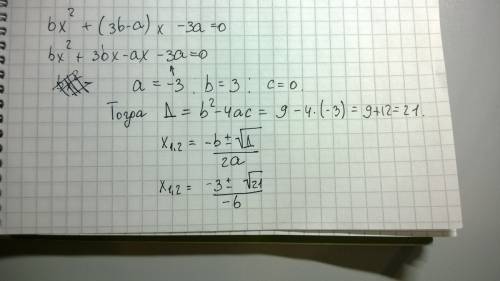 bx² + (3b-a)x -3a=0
bx² + 3bx-ax-3a=0
a = -3; b = 3; c=0.
Тогда Δ = b²-4ac = 9 - 4·(-3) = 9+12=21.
x₁,₂ = (-b ± √Δ)/2a
x₁,₂ = (-3 ± √21)/-6